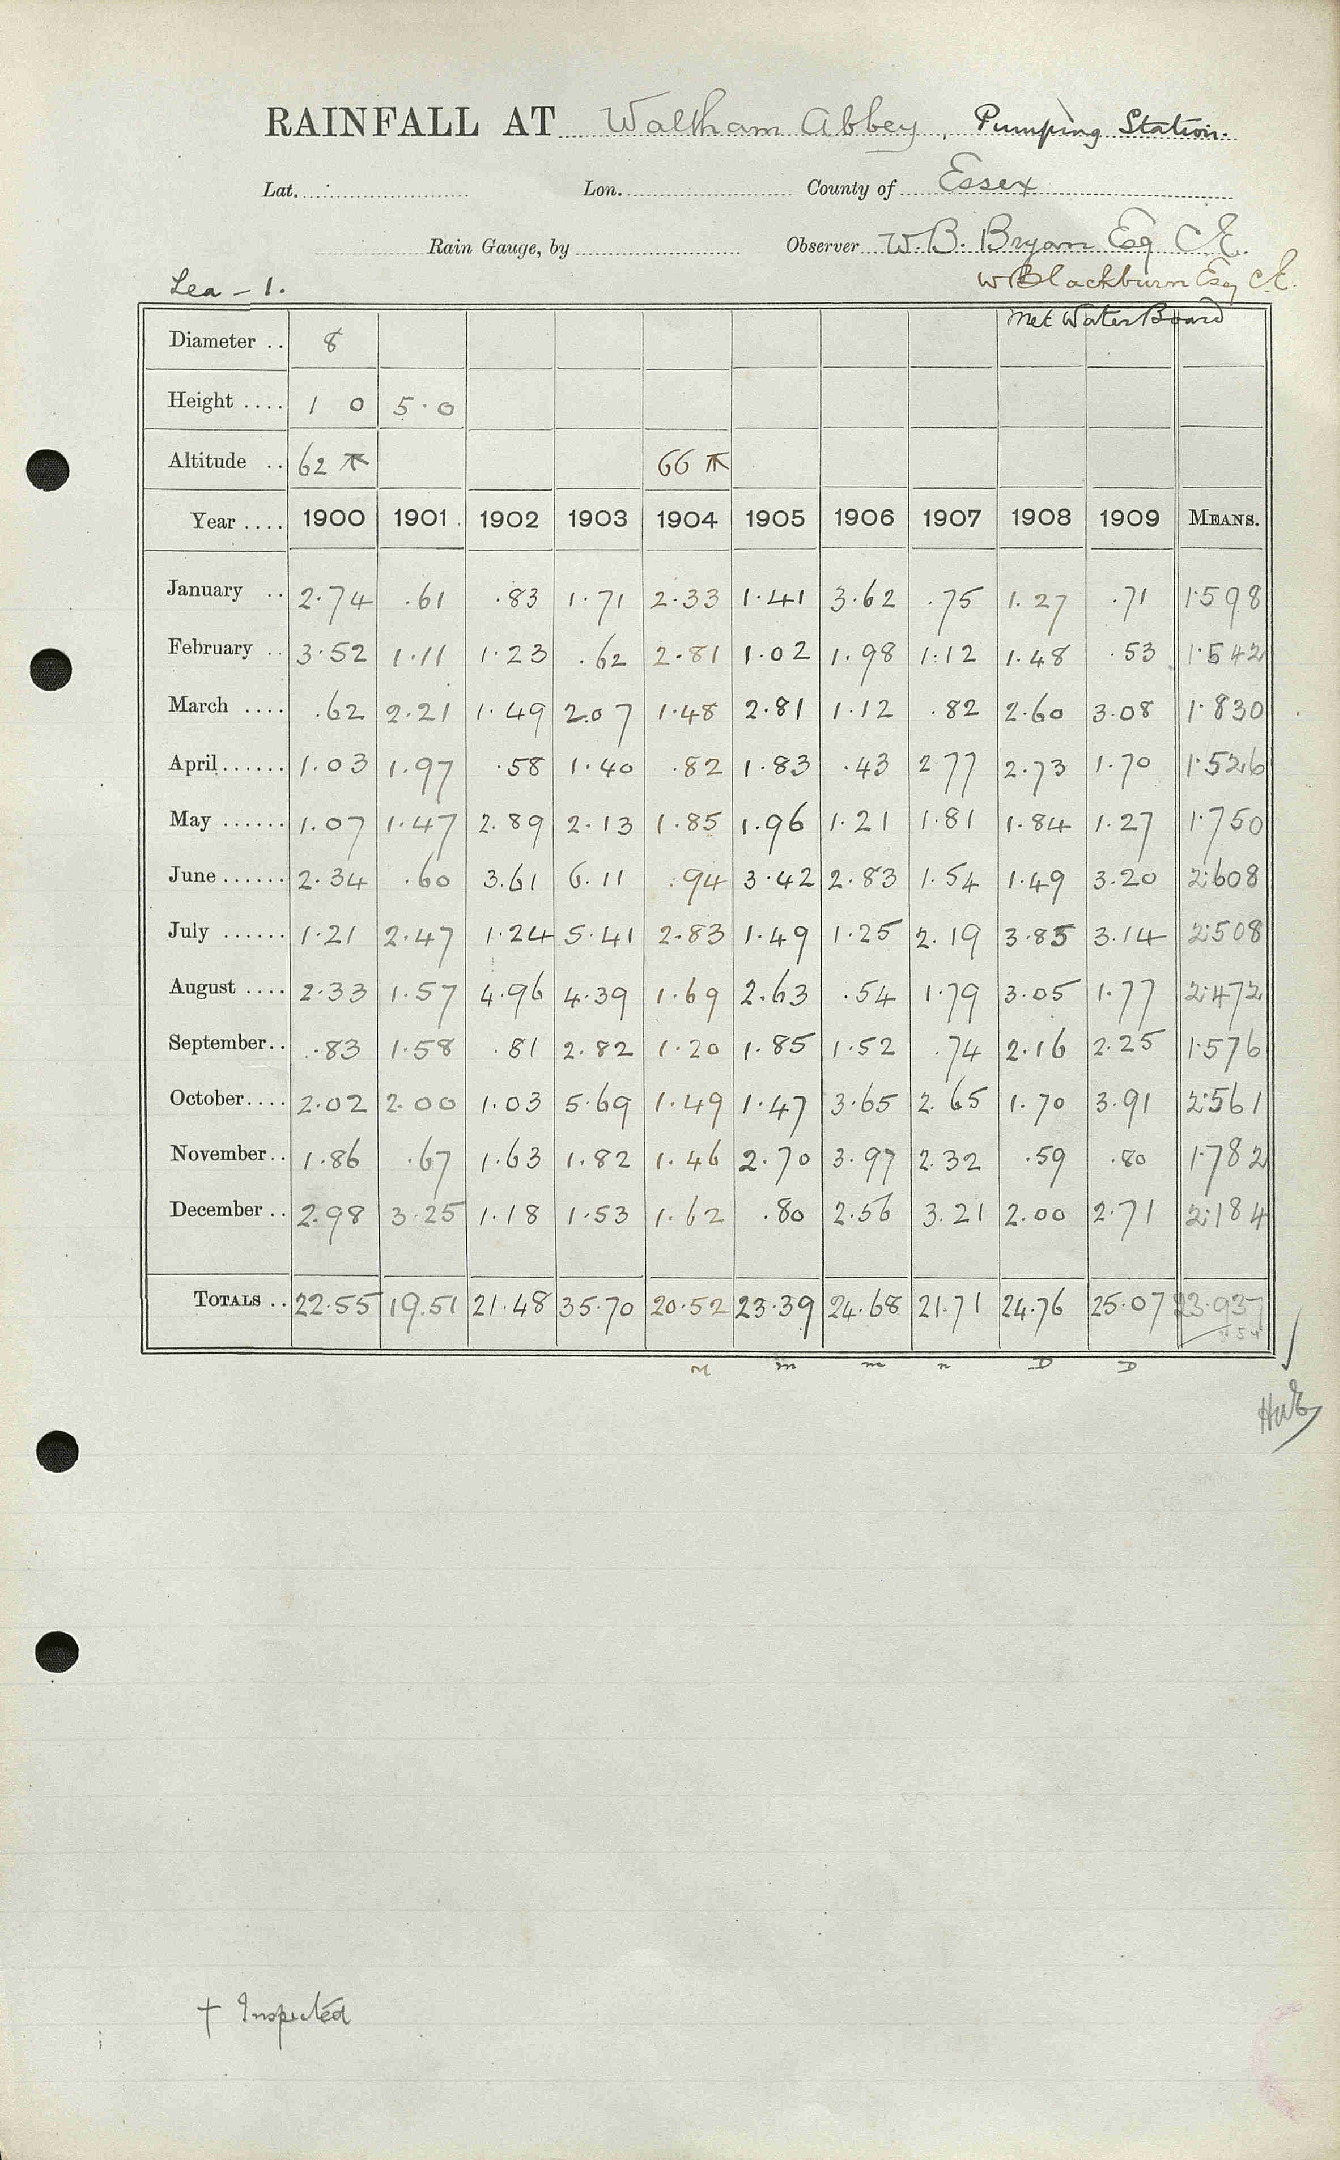 RAINFALL AT Waltham Abbey, Pumping Station.
Lat. Lon. County of Essex
Rain Gauge, by Observer W. B. Bryan Esq C.E.
Lea - 1. W Blackburn Esq C.E.
Met Water Board
Diameter .. 8
Height .... 1 0 5.0
Altitude .. 62 66
Year .... 1900 1901 1902 1903 1904 1905 1906 1907 1908 1909 MEANS.
January .. 2.74 .61 .83 1.71 2.33 1.41 3.62 .75 1.27 .71 1.598
February .. 3.52 1.11 1.23 .62 2.81 1.02 1.98 1.12 1.48 .53 1.542
March .... .62 2.21 1.49 2.07 1.48 2.81 1.12 .82 2.60 3.08 1.830
April...... 1.03 1.97 .58 1.40 .82 1.83 .43 2 77 2.73 1.70 1.526
May ...... 1.07 1.47 2.89 2.13 1.85 1.96 1.21 1.81 1.84 1.27 1.750
June ...... 2.34 .60 3.61 6.11 .94 3.42 2.83 1.54 1.49 3.20 2.608
July ...... 1.21 2.47 1.24 5.41 2.83 1.49 1.25 2.19 3.85 3.14 2.508
August .... 2.33 1.57 4.96 4.39 1.69 2.63 .54 1.79 3.05 1.77 2.472
September.. .83 1.58 .81 2.82 1.20 1.85 1.52 .74 2.16 2.25 1.576
October.... 2.02 2.00 1.03 5.69 1.49 1.47 3.65 2.65 1.70 3.91 2.561
November.. 1.86 .67 1.63 1.82 1.46 2.70 3.97 2.32 .59 .80 1.782
December .. 2.98 3.25 1.18 1.53 1.62 .80 2.56 3.21 2.00 2.71 2.184
TOTALS .. 22.55 19.51 21.48 35.70 20.52 23.39 24.68 21.71 24.76 25.07 23.937
M m m n D D
† Inspected